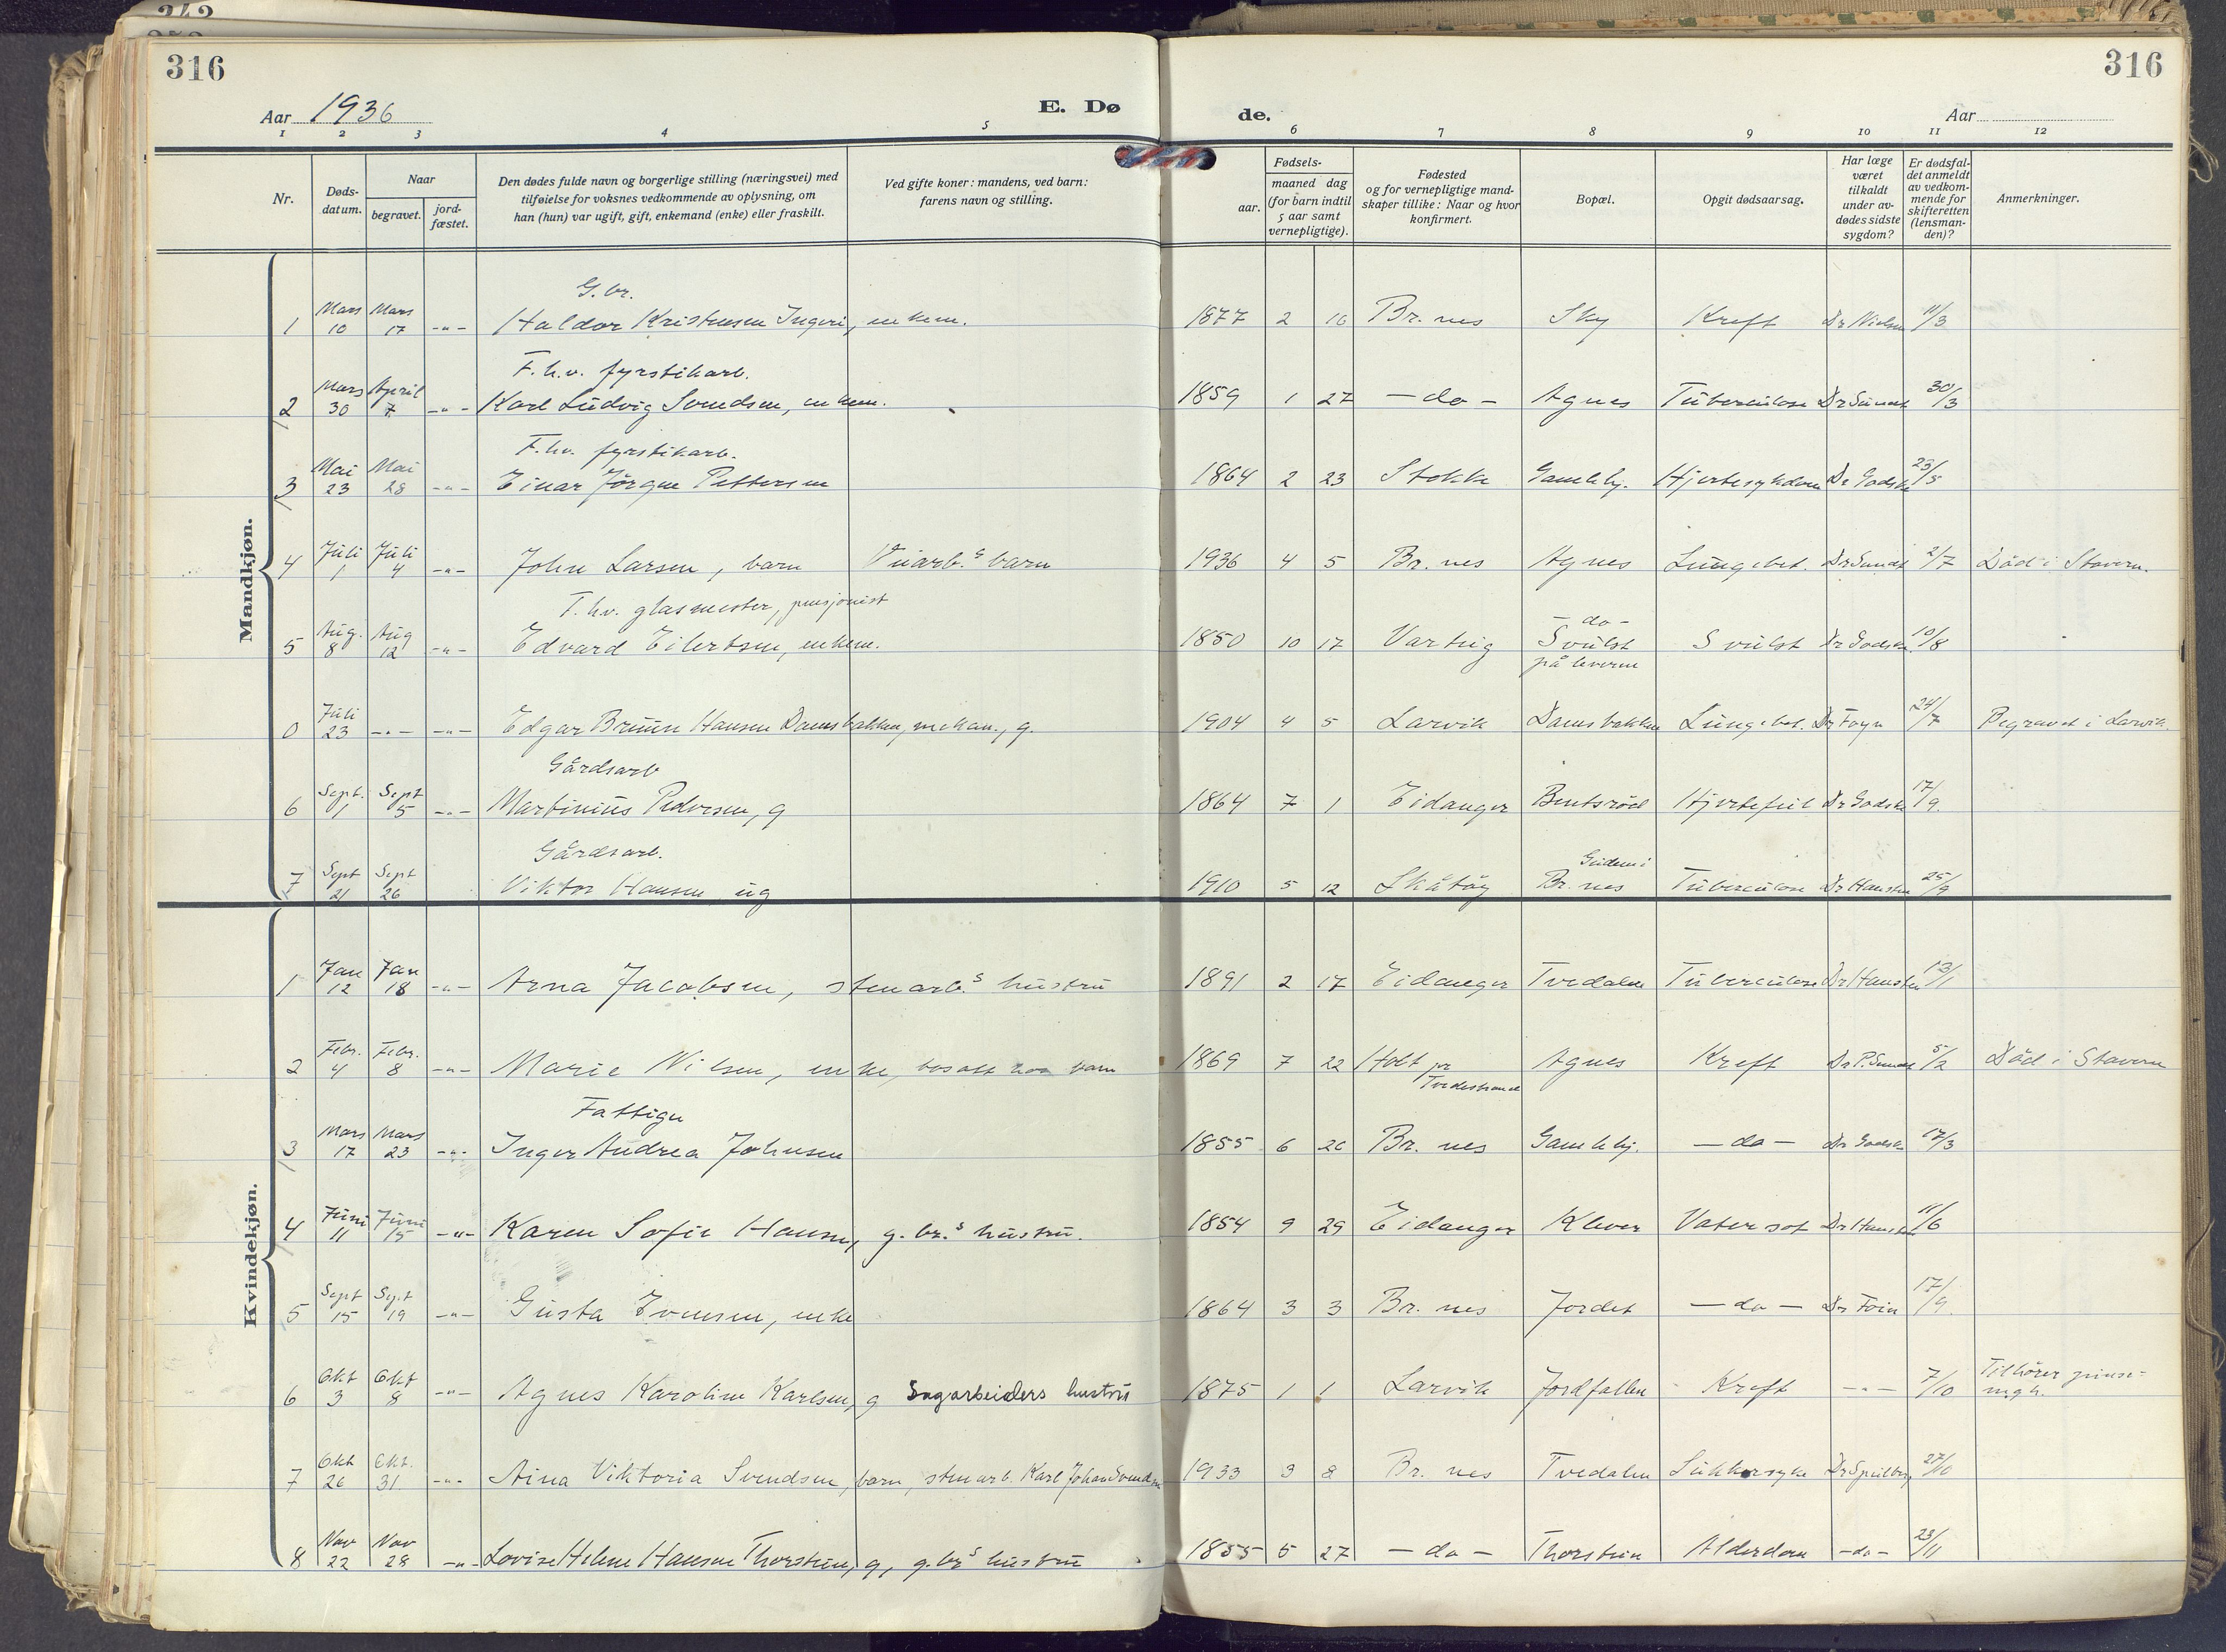 342
316
316
Aar 1936
E. Dø
de.
Aar
1 2 3 4 5 6 7 8 9 10 11 12
Nr.
Døds-
datum.
Naar
begravet.
jord-
fæstet.
Den dødes fulde navn og borgerlige stilling (næringsvei) med
tilføielse for voksnes vedkommende av oplysning, om
han (hun) var ugift, gift, enkemand (enke) eller fraskilt.
Ved gifte koner: mandens, ved barn:
farens navn og stilling.
Fødsels-
aar.
maaned dag
(for barn indtil
5 aar samt
vernepligtige).
Fødested
og for vernepligtige mand-
skaper tillike: Naar og hvor
konfirmert.
Bopæl.
Opgit dødsaarsag.
Har læge
været
tilkaldt
under av-
dødes sidste
sygdom?
Er dødsfal-
det anmeldt
av vedkom-
mende for
skifteretten
(lensman-
den)?
Anmerkninger.
Mandkjøn.
G.br.
1 Mars 10 Mars 17 -"- Haldor Kristensen Ingeri, enkem. 1877 2 16 Br.nes Sky Kreft Dr Nielsen 11/3
F.h.v. fyrstikarb.
2 Mars 30 April 7 -"- Karl Ludvig Svendsen, enkem. 1859 1 27 - do - Agnes Tuberculose Dr Sundt 30/3
F.hv. fyrstikarb.
3 Mai 23 Mai 28 -"- Einar Jørgen Pettersen 1864 2 23 Stokke Gamleby. Hjertesykdom Dr Godske 23/5
4 Juli 1 Juli 4 -"- John Larsen, barn barn 1936 4 5 Br.nes Agnes Lungebet. Dr Sundt 2/7 Död i Stavern.
F.hv. glasmester, pensjonist
- do -
5 Aug. 8 Aug 12 -"- Edvard Eilertsen, enkem. 1850 10 17 Varteig Svulst Svulst Dr Godske 10/8
på leveren
0 Juli 23 -"- -"- Edgar Bruun Hansen Damsbakken, mekan., g. 1904 4 5 Larvik Damsbakken Lungebet. Dr Foyn 24/7 Begravet i Larvik.
Gårdsarb
6 Sept. 1 Sept 5 -"- Martinius Pedersen, g 1864 7 1 Eidanger Bentsröd Hjertefeil Dr Godske 17/9.
Gårdsarb.
Br.nes
7 Sept 21 Sept 26 Viktor Hansen ug 1910 5 12 Skåtöy Tuberculose Dr Hansten 25/9
Kvindekjøn.
1 Jan 12 Jan 18 -"- Arna Jacobsen, stenarb.s hustru 1891 2 17 Eidanger Tvedalen Tuberculose Dr Hansten 13/1
2 Febr. 4 Febr. 8 -"- Marie Nilsen, enke, bosatt hos barn 1869 7 22 Holt pr Agnes Kreft Dr P. Sundt 5/2 Död i Stavern
Tvedestrand
Fattigu
3 Mars 17 Mars 23 -"- Inger Andrea Johnsen 1855 6 26 Br. nes Gamleby. - do - Dr Godske 17/3
4 Juni 11 Juni 15 -"- Karen Sofie Hansen, g. br.s hustru. 1854 9 29 Eidanger Klever Vatersot Dr Hansten 11/6
5 Sept 15 Sept 19 -"- Gusta Evensen, enke 1864 3 3 Br. nes Jordet - do - Dr Foin 17/9.
6 Okt 3 Okt 8 -"- Agnes Karoline Karlsen, g Sagarbeiders hustru 1875 1 1 Larvik Jordfallen Kreft -"- 7/10 Tilhörer pinse=
mgh.
7 Okt 26 Okt. 31 -"- Aina Viktoria Svendsen, barn, stenarb. Karl Johan Svendsen 1933 3 8 Br. nes Tvedalen Sukkersyke Dr 27/10
8 Nov 22 Nov 28 -"- Lovise Helene Hansen Thorstein, g, g.brs hustru 1855 5 27 - do - Thorstein Alderdom - do - 23/11